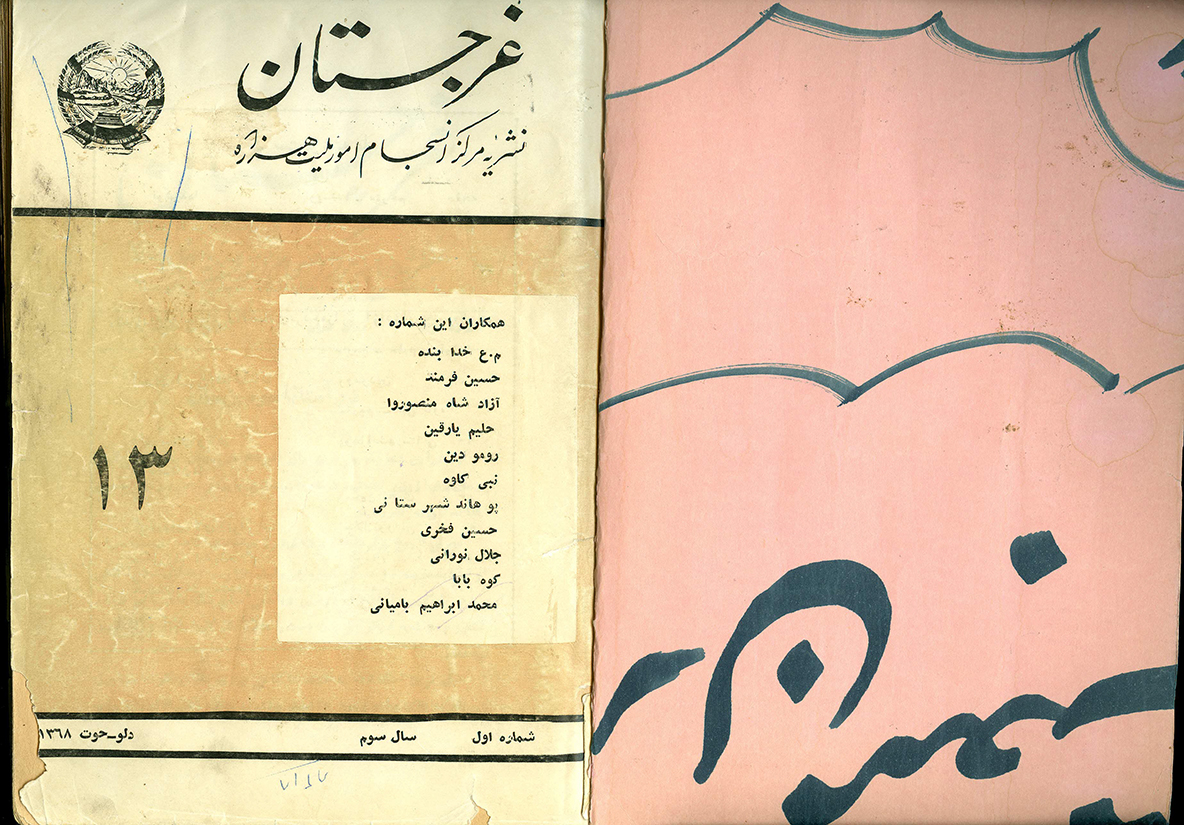 غرجستان
نشریهٔ مرکز انسجام امور ملیت هزاره
همکاران این شماره :
م.ع خدا بنده
حسین فرمند
آزاد شاه منصوروا
حلیم یارقین
رومو دین
نبی کاوه
پو هاند شهر ستا نی
حسین فخری
جلال نورانی
کوه بابا
محمد ابراهیم بامیانی
۱۳
شماره اول سال سوم دلو-حوت ۱۳٦۸